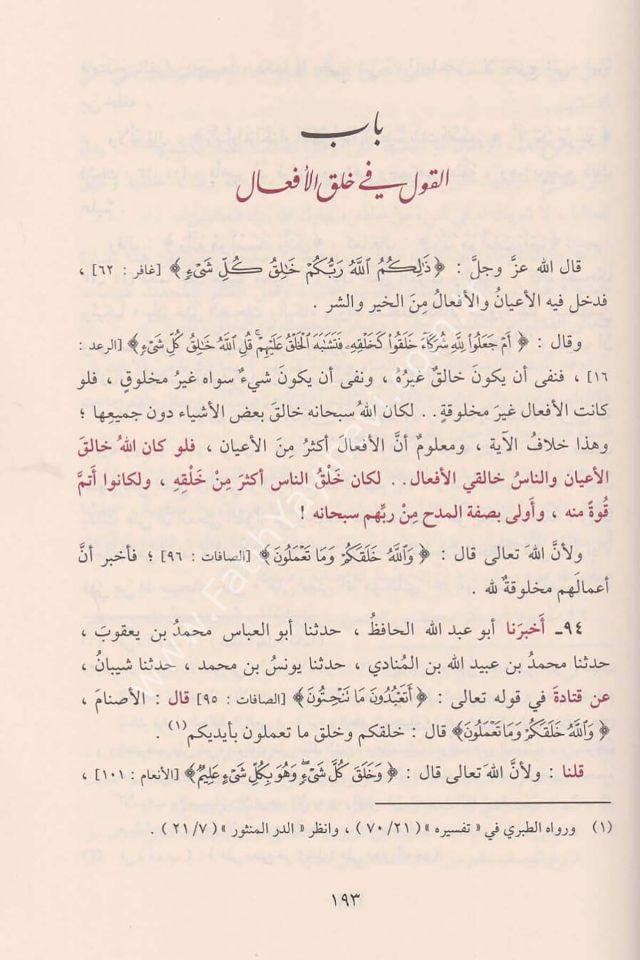 باب
القول في خلق الأفعال
قال الله عزَّ وجلَّ : ﴿ ذَٰلِكُمُ ٱللَّهُ رَبُّكُمْ خَٰلِقُ كُلِّ شَىْءٍ ﴾ [غافر : ٦٢] ،
فدخل فيه الأعيان والأفعالُ مِنَ الخير والشر .
وقال : ﴿ أَمْ جَعَلُوا۟ لِلَّهِ شُرَكَآءَ خَلَقُوا۟ كَخَلْقِهِۦ فَتَشَٰبَهَ ٱلْخَلْقُ عَلَيْهِمْ ۚ قُلِ ٱللَّهُ خَٰلِقُ كُلِّ شَىْءٍ ﴾ [الرعد :
١٦] ، فنفى أن يكونَ خالقٌ غيرُهُ ، ونفى أن يكونَ شيءٌ سواه غيرُ مخلوقٍ ، فلو
كانت الأفعال غيرَ مخلوقةٍ . . لكان اللهُ سبحانه خالقَ بعض الأشياء دون جميعِها ؛
وهذا خلافُ الآية ، ومعلومٌ أنَّ الأفعالَ أكثرُ مِنَ الأعيان ، فلو كان اللهُ خالقَ
الأعيان والناسُ خالقي الأفعال . . لكان خَلْقُ الناس أكثرَ مِنْ خَلْقِهِ ، ولكانوا أتمَّ
قوةً منه ، وأَولى بصفة المدح مِنْ ربِّهم سبحانه !
ولأنَّ اللهَ تعالى قال : ﴿ وَٱللَّهُ خَلَقَكُمْ وَمَا تَعْمَلُونَ ﴾ [الصافات : ٩٦] ؛ فأخبر أنَّ
أعمالَهم مخلوقةٌ لله .
٩٤ـ أَخبرَنا أبو عبد الله الحافظُ ، حدثنا أبو العباس محمدُ بن يعقوبَ ،
حدثنا محمدُ بن عبيد الله بن المُنادي ، حدثنا يونسُ بن محمد ، حدثنا شيبانُ ،
عن قتادةَ في قوله تعالى : ﴿ أَتَعْبُدُونَ مَا نَنْحِتُونَ ﴾ [الصافات : ٩٥] قال : الأصنامَ ،
﴿ وَٱللَّهُ خَلَقَكُمْ وَمَا تَعْمَلُونَ ﴾ قال : خلقكم وخلق ما تعملون بأيديكم (١) .
قلنا : ولأنَّ اللهَ تعالى قال : ﴿ وَخَلَقَ كُلَّ شَىْءٍ ۖ وَهُوَ بِكُلِّ شَىْءٍ عَلِيمٌ ﴾ [الأنعام : ١٠١] ،
(١) ورواه الطبري في « تفسيره » ( ٧٠/٢١ ) ، وانظر « الدر المنثور » ( ٢١/٧ ) .
١٩٣